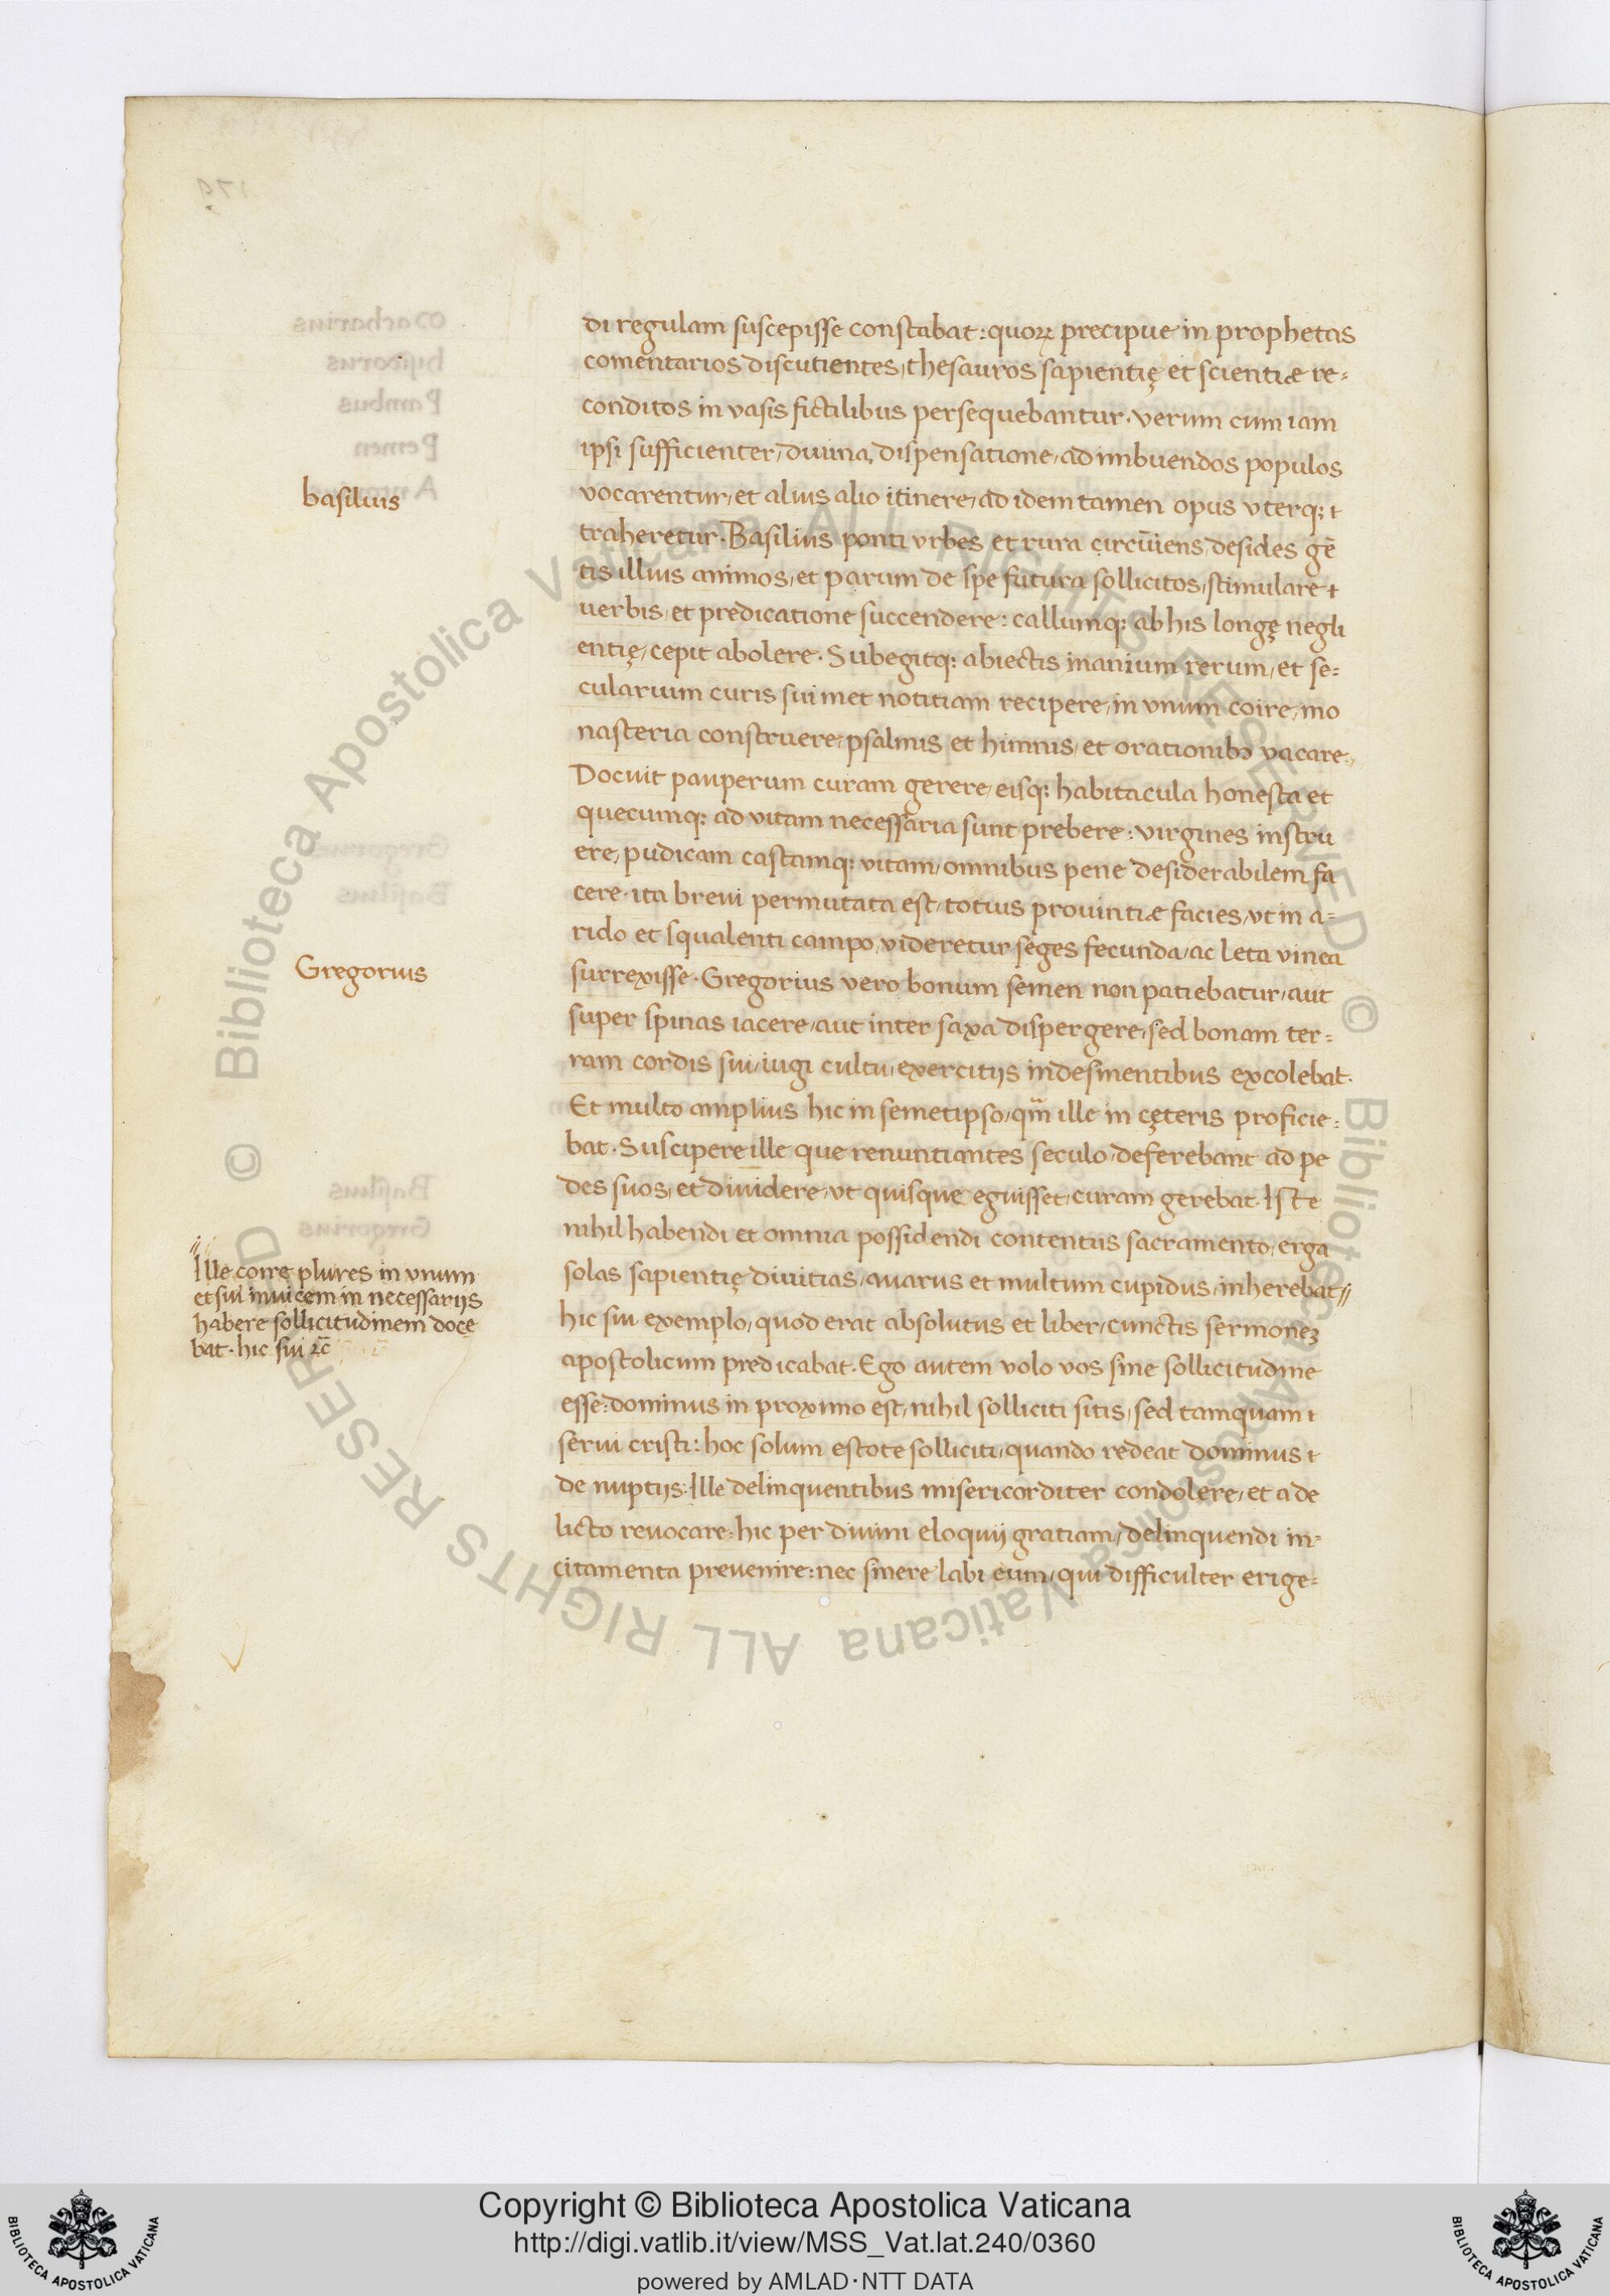 di regulam suscepisse constabat: quoꝝ precipue in prophetas
comentarios discutientes, thesauros sapientię et scientiæ re-
conditos in vasis fictilibus persequebantur. verum cum iam
ipsi sufficienter, diuina, dispensatione, ad imbuendos populos
vocarentur, et alius alio itinere, ad idem tamen opus vterq;
traheretur. Basilius ponti vrbes et rura circūiens, desides gē
tis illius animos, et parum de spe futura sollicitos, stimulare
uerbis, et predicatione succendere: callumq; ab his longę negli
entię, cepit abolere. Subegitq; abiectis inanium rerum, et se-
cularium curis sui met notitiam recipere, in vnum coire, mo
nasteria construere, psalmis et himnis, et orationibꝫ vacare.
Docuit pauperum curam gerere, eisq; habitacula honesta et
quecumq; ad vitam necessaria sunt prebere: virgines instru
ere, pudicam castamq; vitam, omnibus pene desiderabilem fa
cere. ita breui permutata est, totius prouintiæ facies, vt in a-
rido et squalenti campo, videretur seges fecunda, ac leta vinea
surrexisse. Gregorius vero bonum semen non patiebatur, aut
super spinas iacere, aut inter saxa dispergere, sed bonam ter-
ram cordis sui, iugi cultu, exercitijs indesinentibus excolebat.
Et multo amplius hic in semetipso, qm̄ ille in cęteris proficie-
bat. Suscipere ille que renuntiantes seculo, deferebant ad pe
des suos, et diuidere, vt quisque eguisset, curam gerebat. Iste
nihil habendi et omnia possidendi contentus sacramento, erga
solas sapientię diuitias, auarus et multum cupidus, inherebat //
hic sui exemplo, quod erat absolutus et liber, cunctis sermoneꝫ
apostolicum predicabat. Ego autem volo vos sine sollicitudine
esse: dominus in proximo est, nihil solliciti sitis, sed tamquam
serui cristi: hoc solum estote solliciti, quando redeat dominus
de nuptijs: Ille delinquentibus misericorditer condolere, et a de
licto reuocare: hic per diuini eloquij gratiam, delinquendi in-
citamenta preuenire: nec sinere labi eum, qui difficulter erige-
basilius
Gregorius
// Ille coire plures in vnum
et sui inuicem in necessarijs
habere sollicitudinem doce
bat. hic sui ⁊c̄
© Biblioteca Apostolica Vaticana ALL RIGHTS RESERVED © Biblioteca Apostolica Vaticana ALL RIGHTS RESERVED
Copyright © Biblioteca Apostolica Vaticana
http://digi.vatlib.it/view/MSS_Vat.lat.240/0360
powered by AMLAD·NTT DATA
BIBLIOTECA APOSTOLICA VATICANA
BIBLIOTECA APOSTOLICA VATICANA